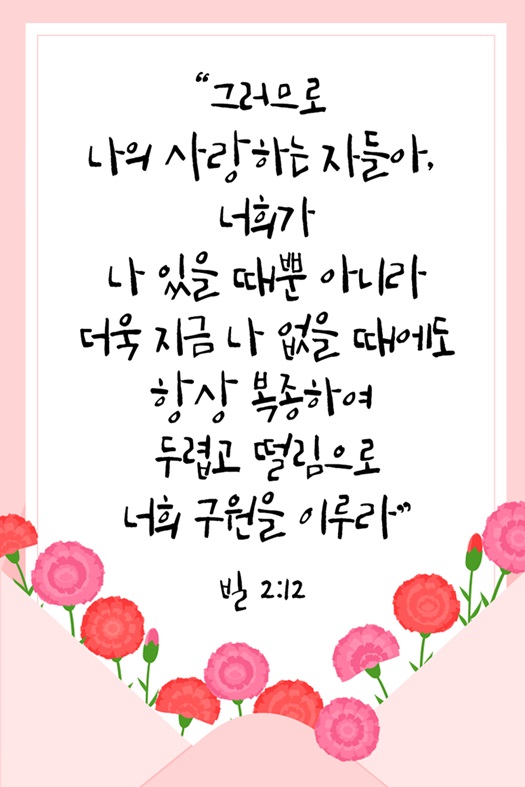 “그러므로
나의 사랑하는 자들아,
너희가
나 있을 때뿐 아니라
더욱 지금 나 없을 때에도
항상 복종하여
두렵고 떨림으로
너희 구원을 이루라”
빌 2:12